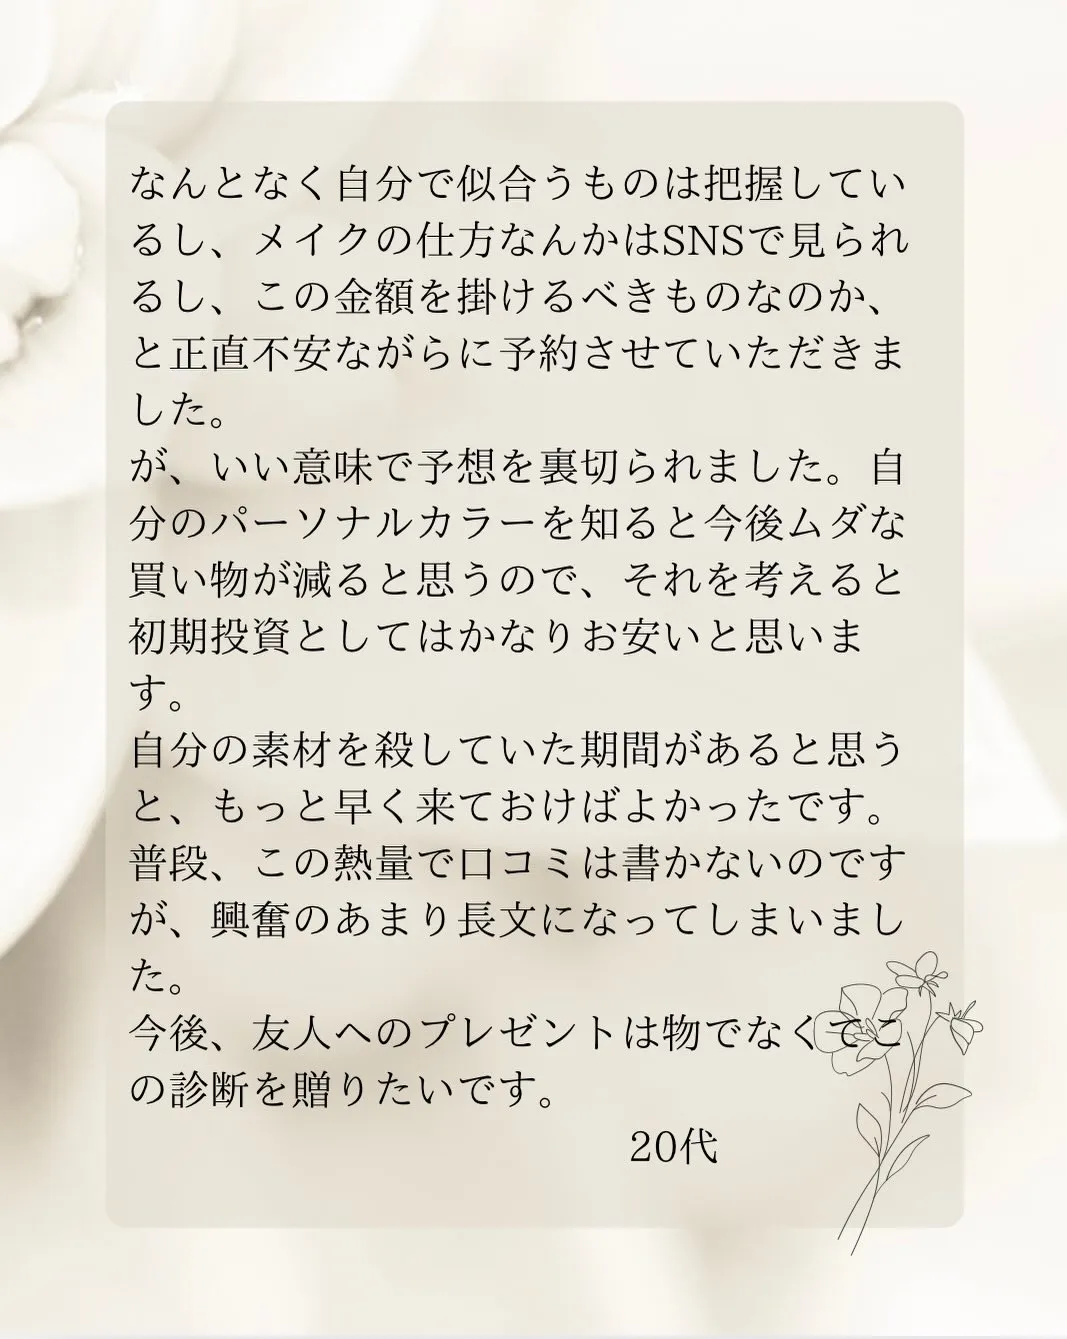 なんとなく自分で似合うものは把握してい
るし、メイクの仕方なんかはSNSで見られ
るし、この金額を掛けるべきものなのか、
と正直不安ながらに予約させていただきま
した。
が、いい意味で予想を裏切られました。自
分のパーソナルカラーを知ると今後ムダな
買い物が減ると思うので、それを考えると
初期投資としてはかなりお安いと思いま
す。
自分の素材を殺していた期間があると思う
と、もっと早く来ておけばよかったです。
普段、この熱量で口コミは書かないのです
が、興奮のあまり長文になってしまいまし
た。
今後、友人へのプレゼントは物でなくてこ
の診断を贈りたいです。
20代